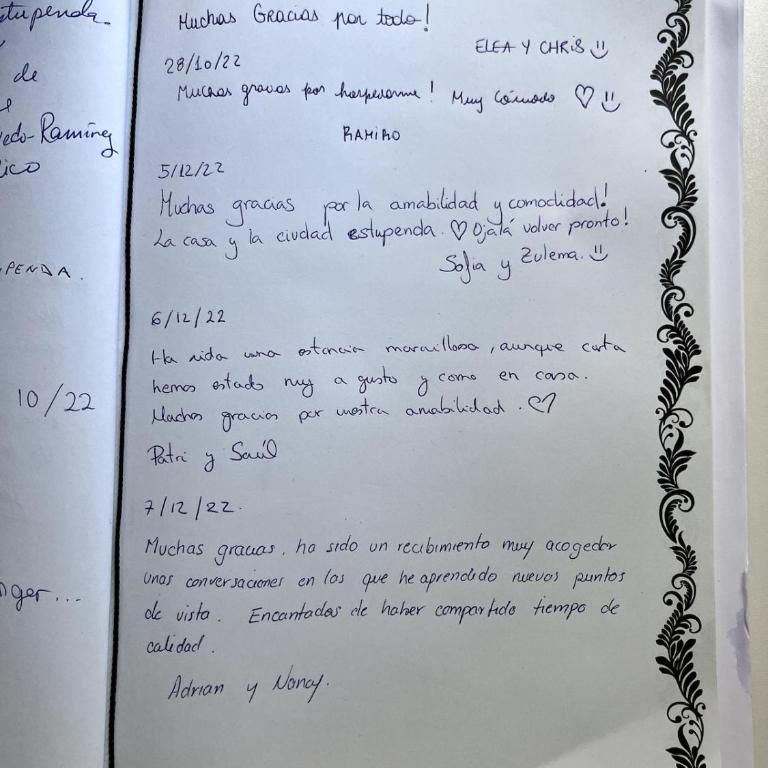 stupenda.
de
edo-Ramírez
ico
PENDA.
10/22
nger...
Muchas Gracias por todo!
ELEA Y CHRIS
28/10/22
Muchas gracias por hospedarme! Muy Cómodo ♡
RAMIRO
5/12/22
Muchas gracias por la amabilidad y comodidad!
La casa y la ciudad estupenda. ♡ Ojalá volver pronto!
Sofia y Zulema.
6/12/22
Ha sido una estancia maravillosa, aunque corta
hemos estado muy a gusto y como en casa.
Muchas gracias por vuestra amabilidad. ♡
Patri y Saúl
7/12/22.
Muchas gracias, ha sido un recibimiento muy acogedor
unas conversaciones en las que he aprendido nuevos puntos
de vista. Encantados de haber compartido tiempo de
calidad.
Adrian y Nancy.